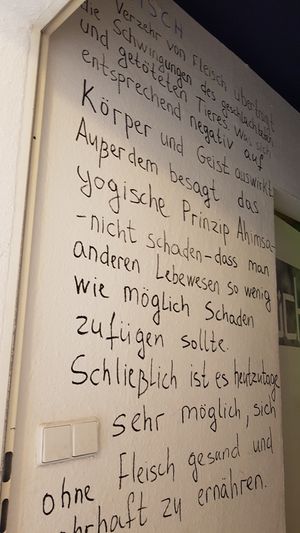 ISCH
Verzehr von Fleisch überträgt
die Schwingungen des geschlachteten
und getöteten Tieres, was sich
entsprechend negativ auf
Körper und Geist auswirkt.
Außerdem besagt das
yogische Prinzip Ahimsa
-nicht schaden-dass man
anderen Lebewesen so wenig
wie möglich Schaden
zufügen sollte.
Schließlich ist es heutzutage
sehr möglich, sich
ohne Fleisch gesund und
hrhaft zu ernähren.